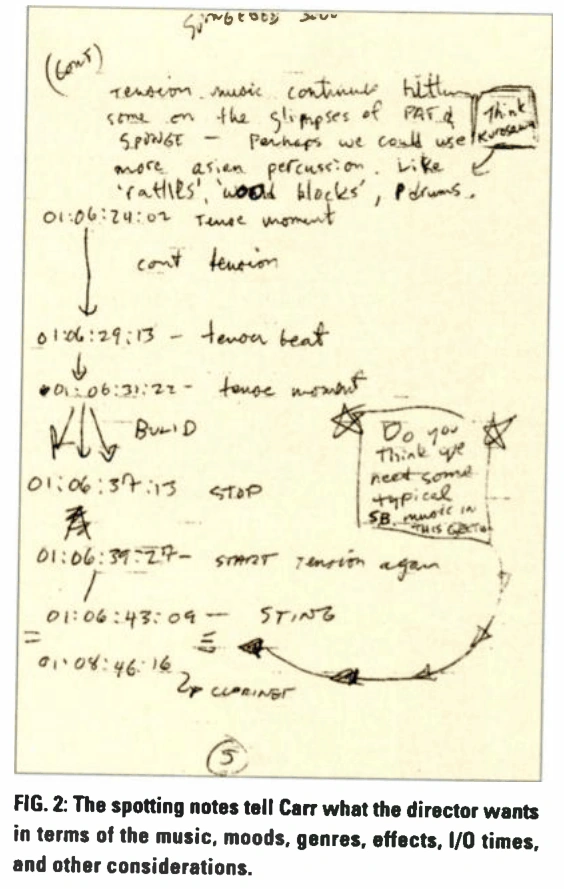 SPONGEBOB
(CONT)
Tension music continues hitting
some on the glimpses of PAT &
SPONGE – Perhaps we could use
more asian percussion. Like
'rattles', 'wood blocks', drums.
Think
Kurosawa
01:06:24:02 Tense moment
cont tension
01:06:29:13 – tense beat
01:06:31:22 – tense moment
BULID
01:06:37:13 STOP
Do you
Think we
need some
typical
SB. music in
THIS SECTION
01:06:39:27 – START Tension again
01:06:43:09 – STING
01:08:46:16
CLARINET
5
FIG. 2: The spotting notes tell Carr what the director wants
in terms of the music, moods, genres, effects, I/O times,
and other considerations.